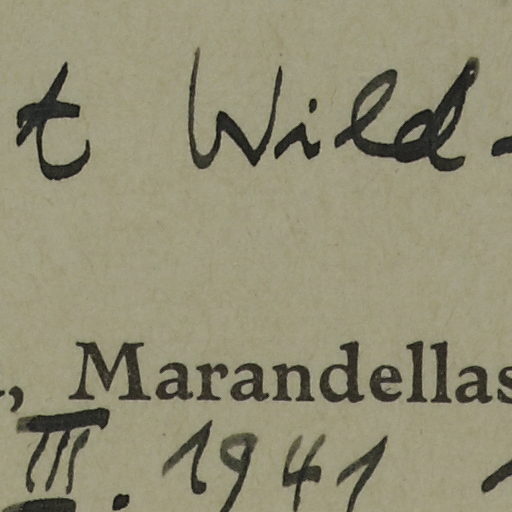 t Wild-
, Marandellas
III. 1941